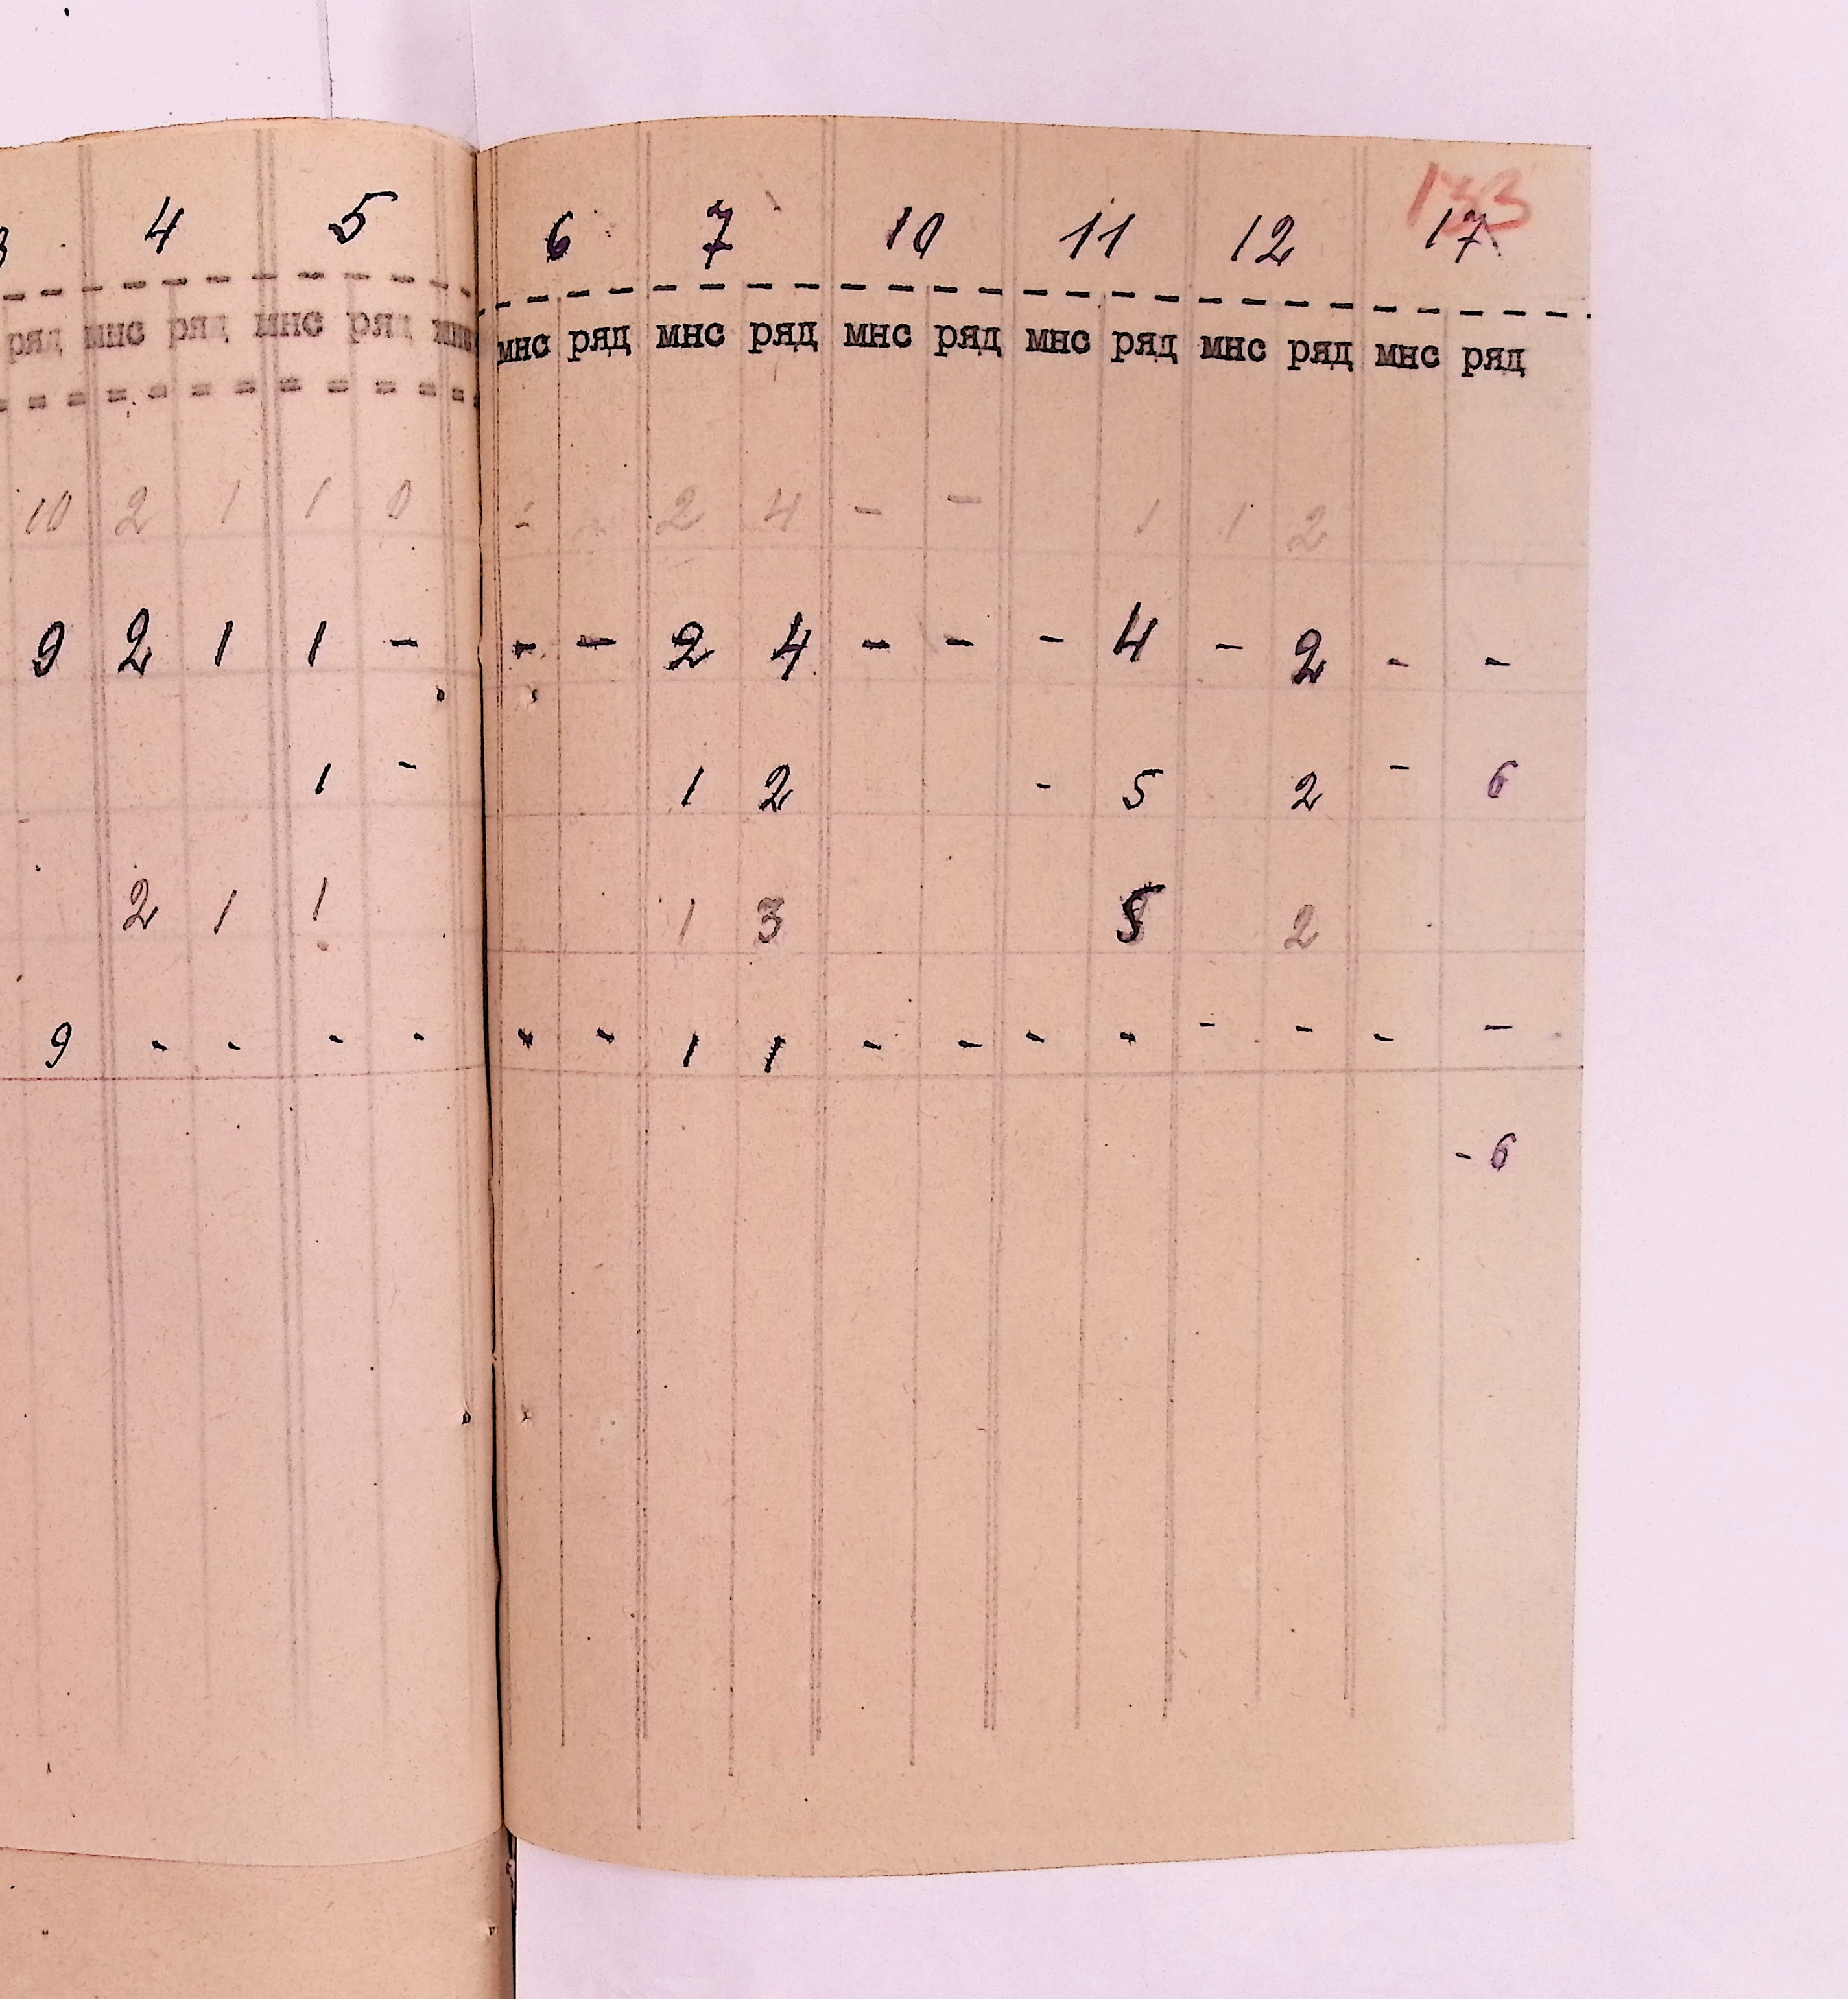 133
4 5 6 7 10 11 12 17
ряд мнс ряд мнс ряд мнс мнс ряд мнс ряд мнс ряд мнс ряд мнс ряд мнс ряд
10 2 1 1 0 - 2 4 - - 1 1 2
9 2 1 1 - - - 2 4 - - - 4 - 2 - -
1 - 1 2 - 5 2 - 6
2 1 1 1 3 5 2
9 - - - - - - 1 1 - - - - - - - -
- 6